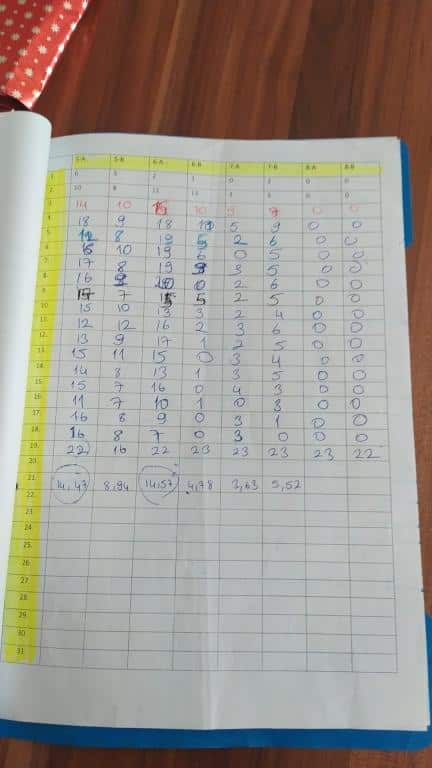 5-A 5-B 6-A 6-B 7-A 7-B 8-A 8-B
1. 6 5 2 1 0 2 0 0
2. 10 8 12 13 4 5 0 0
3. 14 10 10 5 0 0
4. 18 9 18 5 9 0 0
5. 8 19 5 2 6 0 0
6. 10 19 6 0 5 0 0
7. 17 8 19 3 5 0 0
8. 16 2 6 0 0
9. 7 5 2 5 0 0
10. 15 10 13 3 2 4 0 0
11. 12 12 16 2 3 6 0 0
12. 13 9 17 1 2 5 0 0
13. 15 11 15 0 3 4 0 0
14. 14 8 13 1 3 5 0 0
15. 15 7 16 0 4 3 0 0
16. 11 7 10 1 0 3 0 0
17. 16 8 9 0 3 1 0 0
18. 16 8 7 0 3 0 0 0
19. 22 16 22 23 23 23 23 22
20.
21. 14,43 8,94 14,57 4,78 3,63 5,52
22.
23.
24.
25.
26.
27.
28.
29.
30.
31.